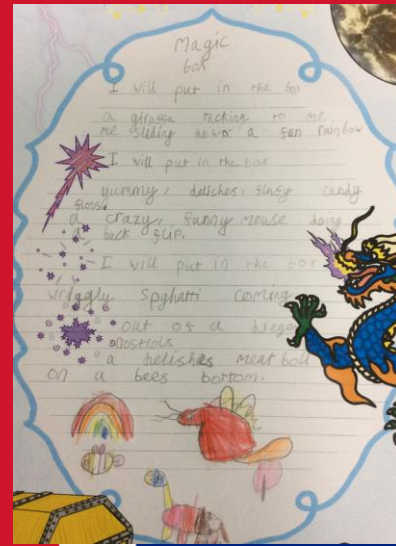 Magic
box
I will put in the box
a girasse tacking to me
me sliding
I will put in the box
yummy, delishes, candy
a crazy, funny mouse doing
a back flip.
I will put in the box
wriggly spghatti coming
out of a
nostrols
a delishes meat boll
on a bees bottom.